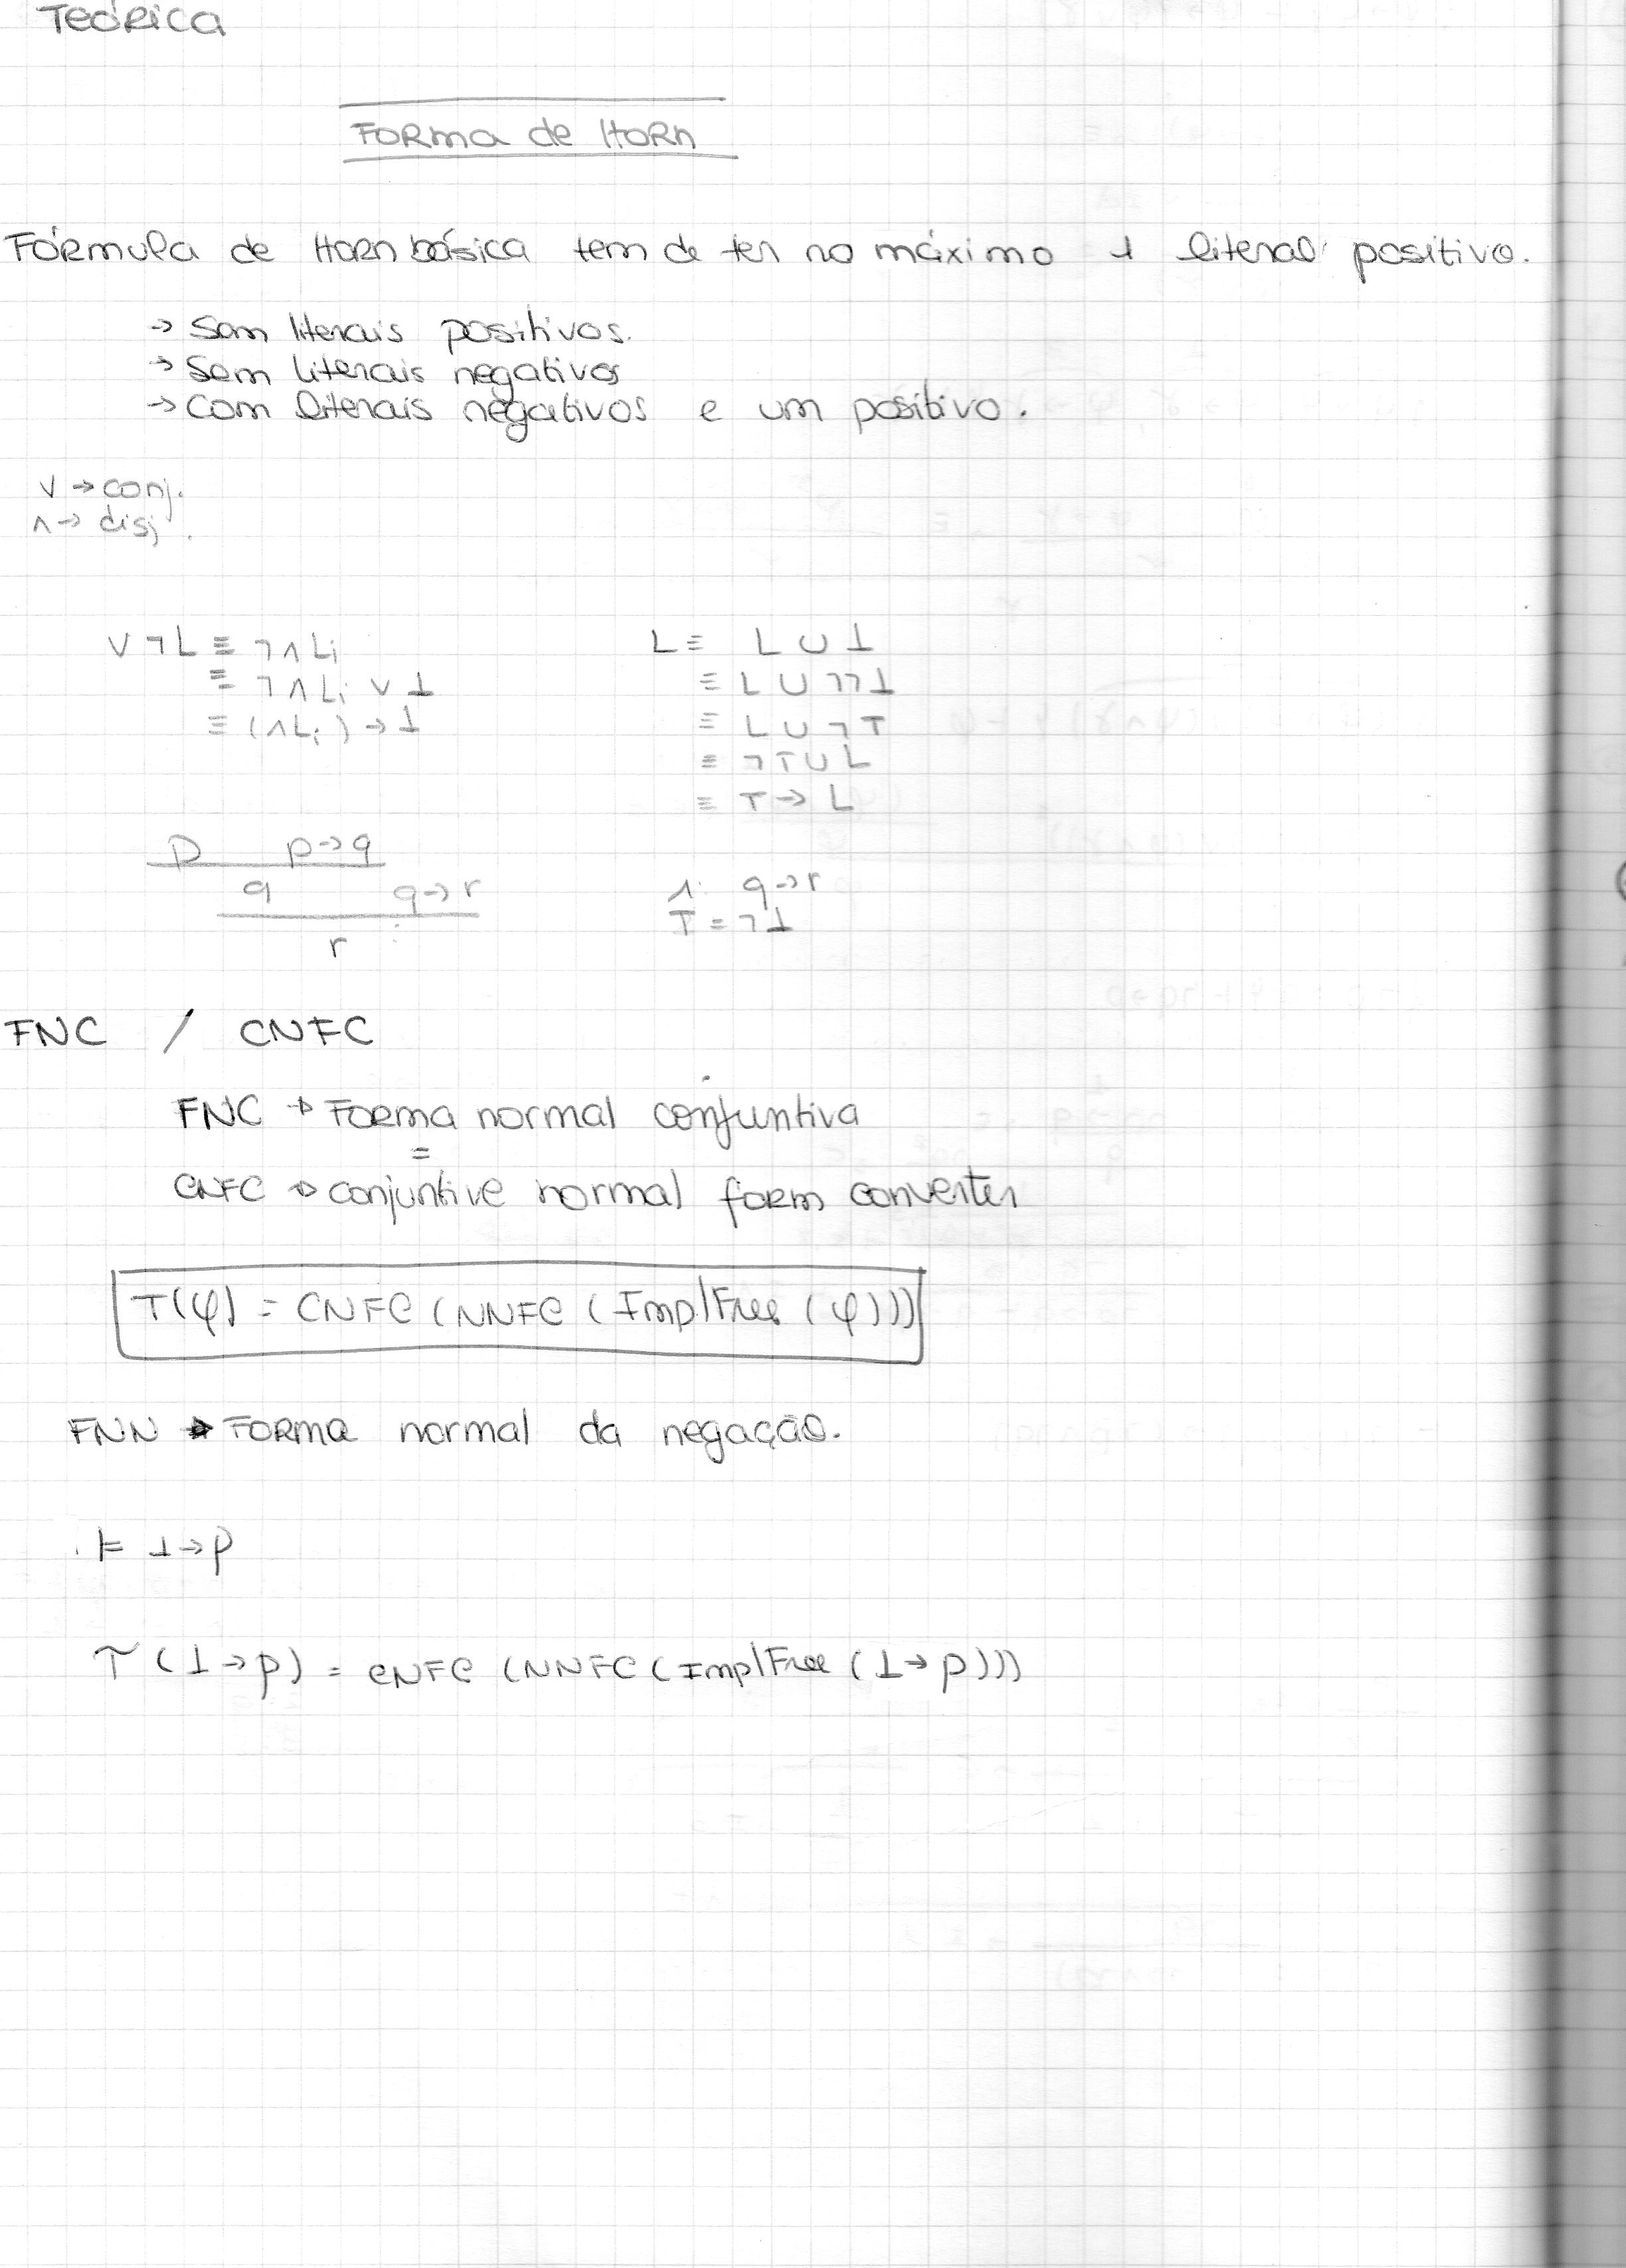 Teórica
Forma de Horn
Fórmula de Horn básica tem de ter no máximo 1 literal positivo.
→ Sem literais positivos.
→ Sem literais negativos
→ com literais negativos e um positivo.
∨ → conj.
∧ → disj.
∨ ¬L ≡ ¬∧Li
≡ ¬∧Li ∨ ⊥
≡ (∧Li) → ⊥
L ≡ L ∪ ⊥
≡ L ∪ ¬¬⊥
≡ L ∪ ¬T
≡ ¬T ∪ L
≡ T → L
p p→q
q q→r
r
1: q→r
T = ¬⊥
FNC / CNFC
FNC → Forma normal conjuntiva
=
CNFC → conjuntive normal form converter
T(φ) = CNFC (NNFC (ImplFree (φ)))
FNN → Forma normal da negação.
⊨ ⊥→p
T (⊥→p) = CNFC (NNFC (ImplFree (⊥→p)))